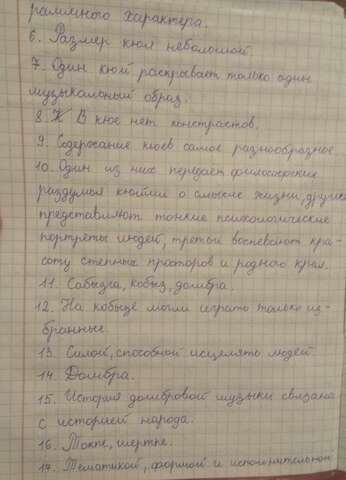 раммного характера.
6. Размер кюя небольшой.
7. Один кюй раскрывает только один
музыкальный образ.
8. В кюе нет констрастов.
9. Содержание кюев самое разнообразное
10. Один из них передаёт философские
раздумья кюйши о смысле жизни, другие
представляют тонкие психологические
портреты людей, третьи воспевают кра-
соту степных просторов и родного края.
11. Сабызга, кобыз, домбра.
12. На кобызе могли играть только из-
бранные.
13. Силой, способной исцелять людей.
14. Домбра.
15. История домбровой музыки связана
с историей народа.
16. Токпе, шертпе.
17. Тематикой, формой и исполнительской